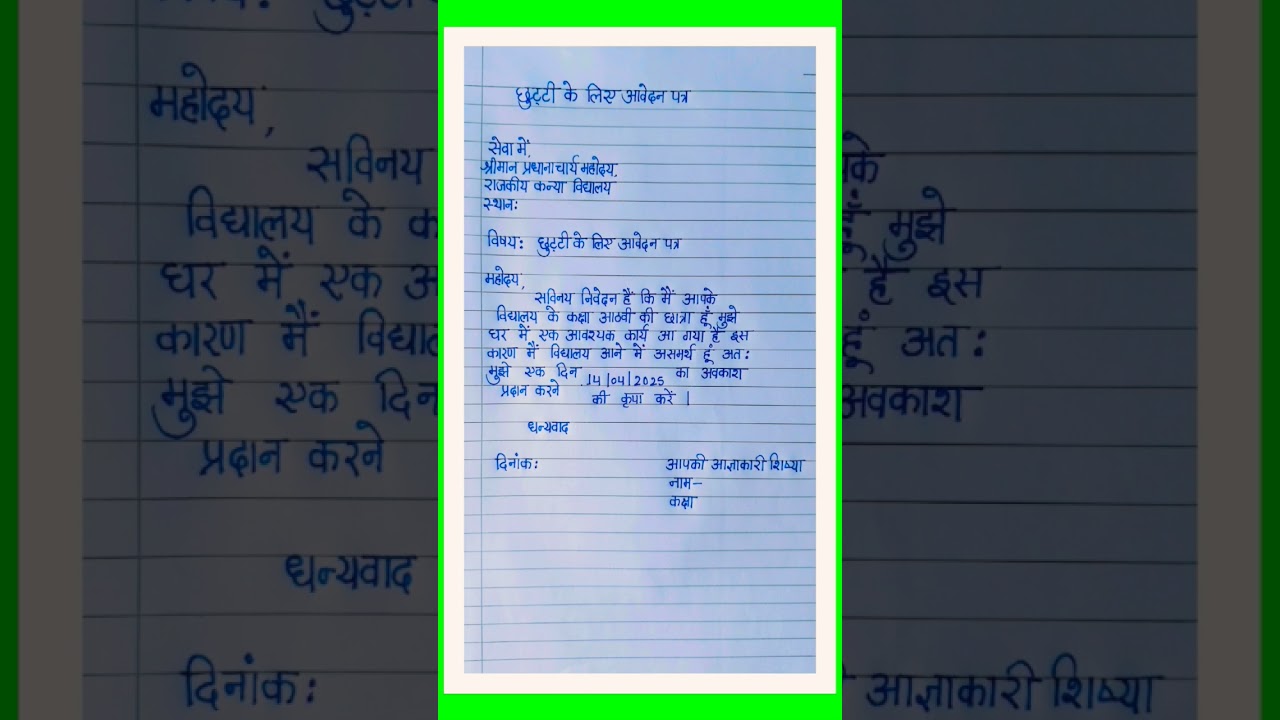 छुट्टी के लिए आवेदन पत्र
सेवा में,
श्रीमान प्रधानाचार्य महोदय,
राजकीय कन्या विद्यालय
स्थान:
विषय: छुट्टी के लिए आवेदन पत्र
महोदय,
सविनय निवेदन हैं कि मैं आपके
विद्यालय के कक्षा आठवी की छात्रा हूँ मुझे
घर में एक आवश्यक कार्य आ गया हैं इस
कारण मैं विद्यालय आने में असमर्थ हूं अत:
मुझे एक दिन 14/04/2025 का अवकाश
प्रदान करने की कृपा करें ।
धन्यवाद
दिनांक: आपकी आज्ञाकारी शिष्या
नाम-
कक्षा